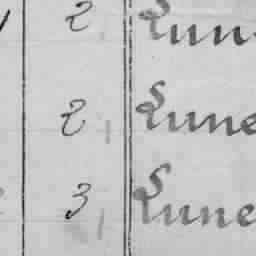 2 Lun
2 Lune
3 Lune